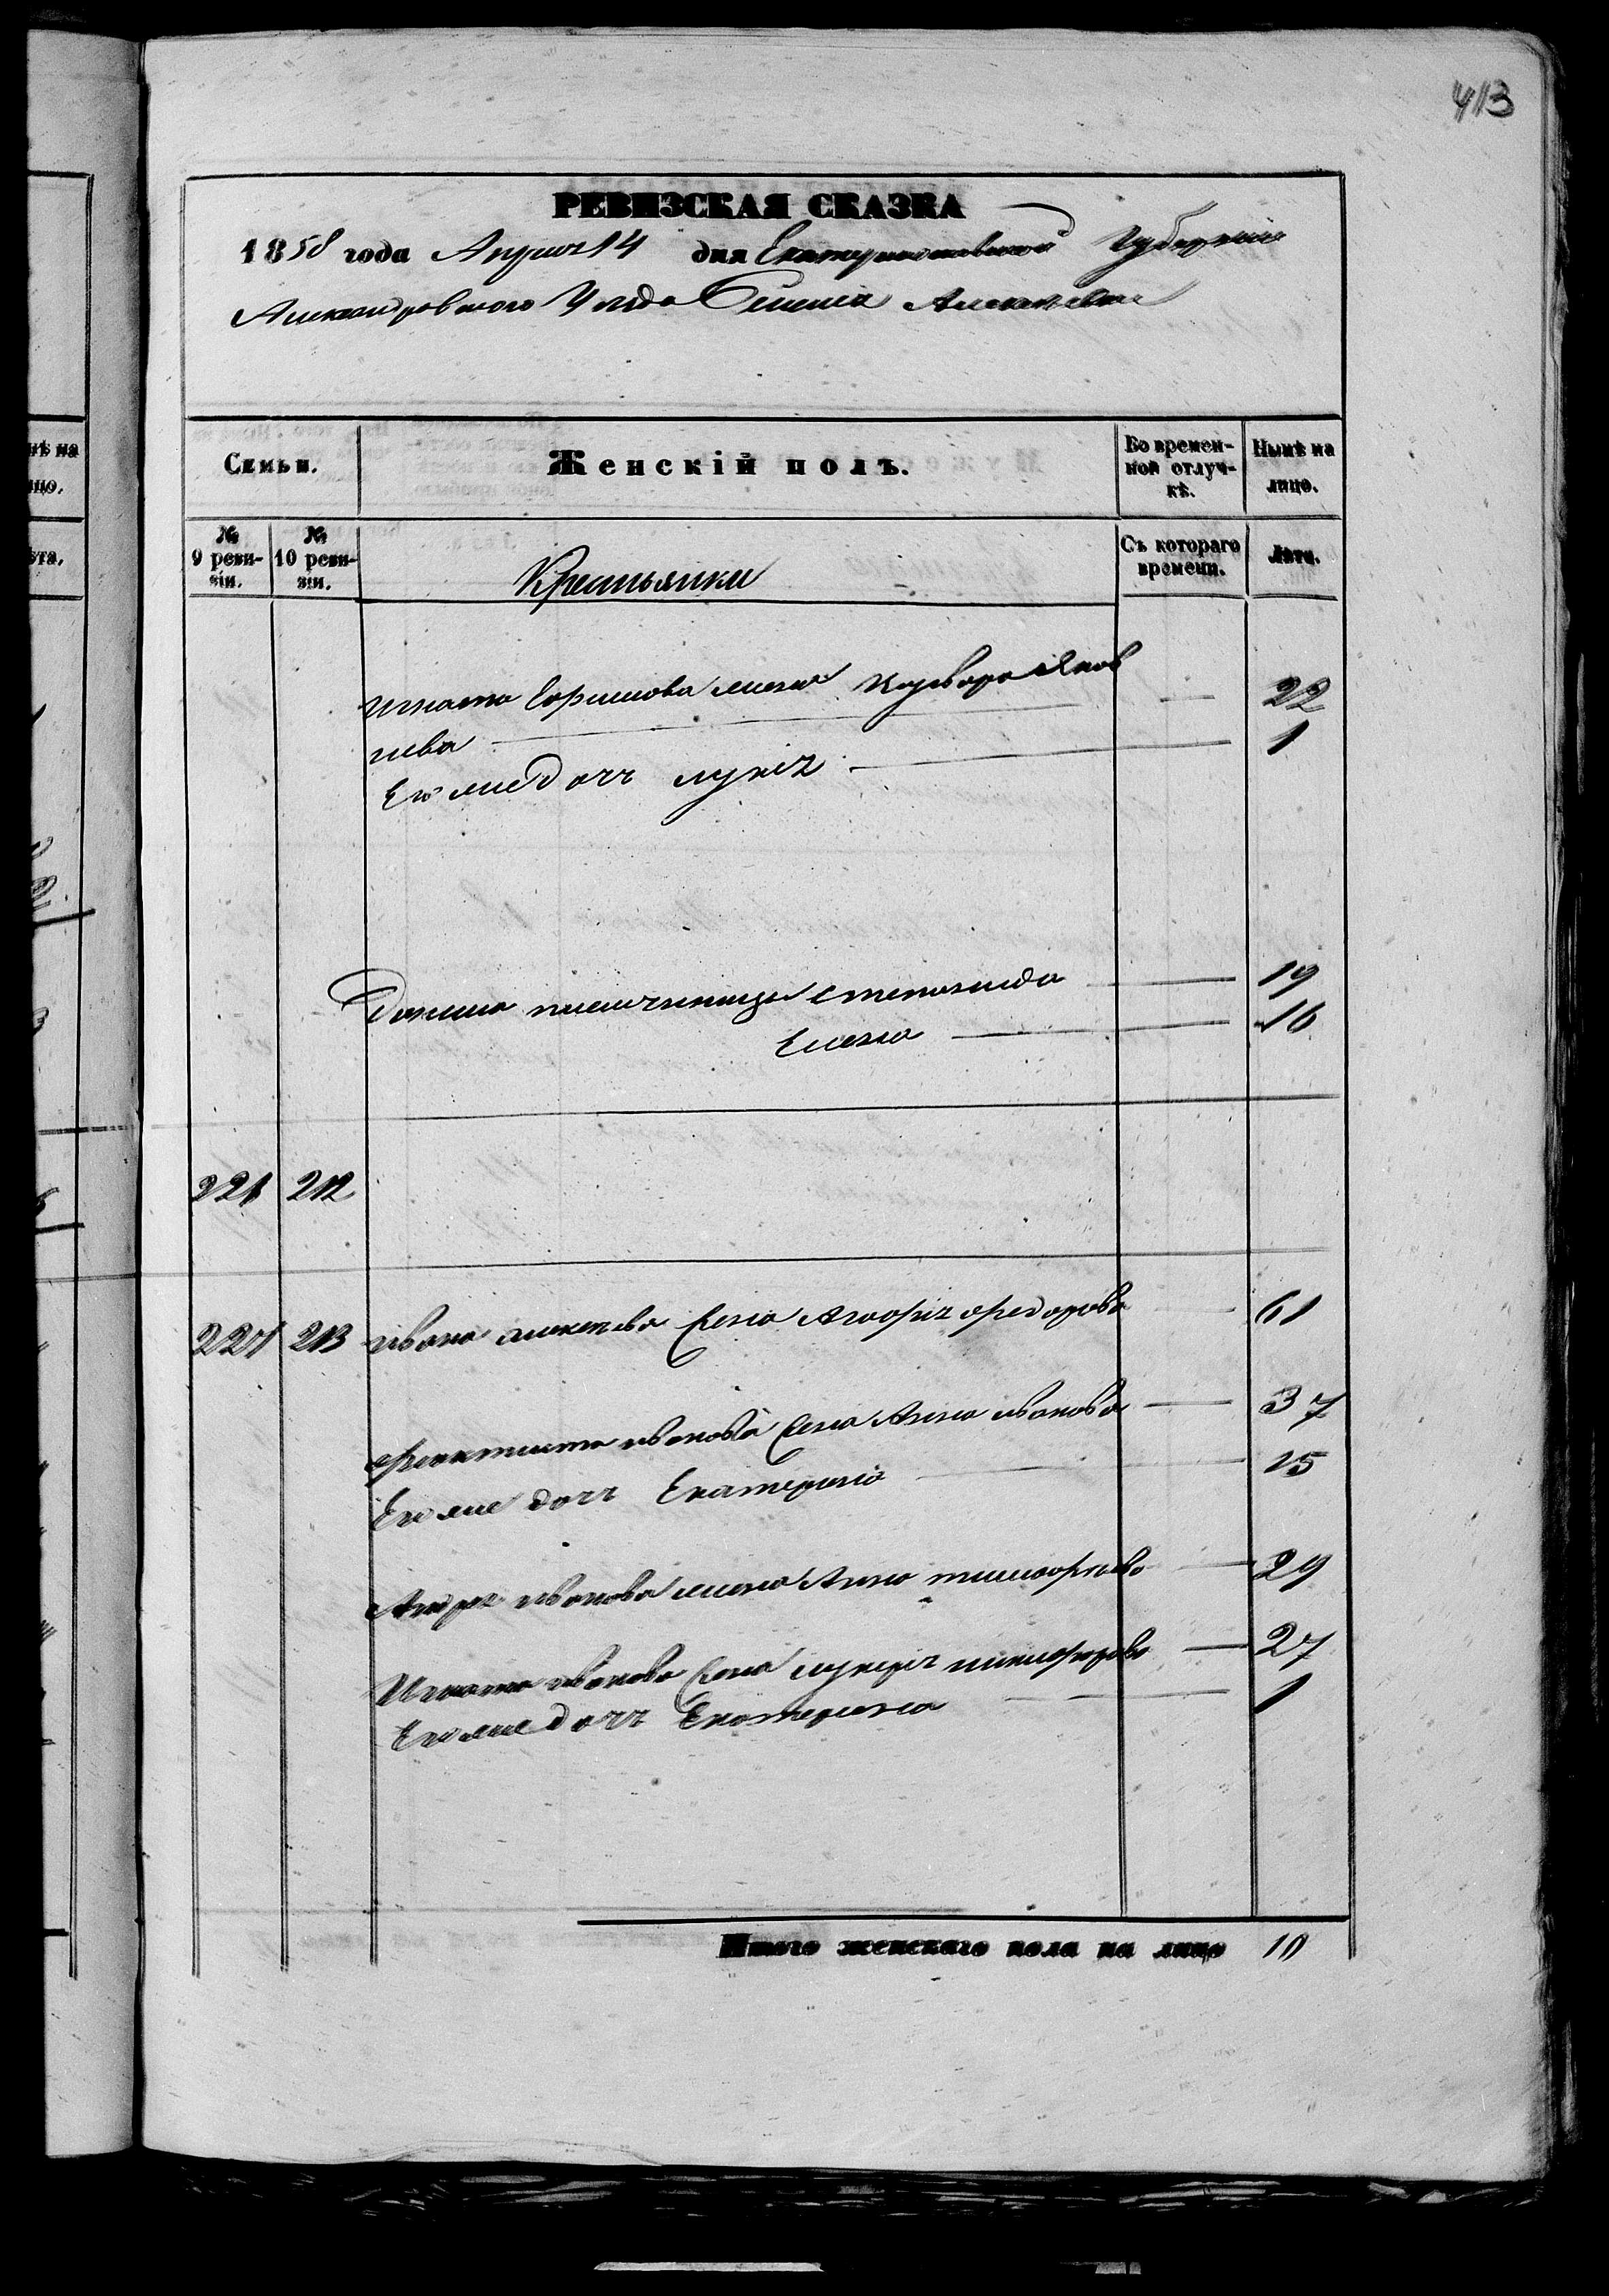 413
РЕВИЗСКАЯ СКАЗКА
1858 года Апреля 14 дня Екатеринославской Губернии
Александровского Уезда Селения Алексеевки
Семьи. Женскій полъ. Во времен-
ной отлуч-
кѣ. Нынѣ на
лицо.
№
9 реви-
зіи. №
10 реви-
зіи. Крестьянки Съ котораго
времени. Лѣта.
Игната жена Яков 22
лева
Его же дочь 1
племянницы Степанида 19
Елена 16
221 212
213 Ивана Алексеева жена Агафія Федорова 61
Феоктиста Иванова жена Анна Иванова 37
Его же дочь Екатерина 15
Иванова жена Анна Тимофеева 29
Игната Иванова жена Лукерія Никифорова 27
Его же дочь Екатерина 1
Итого женскаго пола на лицо 10
нѣ на
ицо.
ѣта.